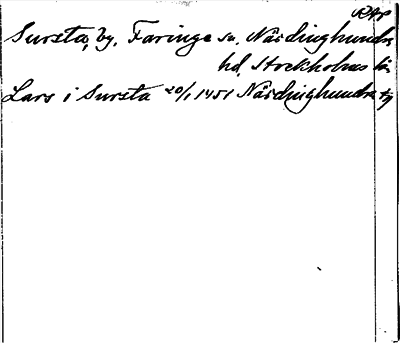 RAp
Sursta, by, Faringe sn, Närdinghundra
hd, Stockholms län
Lars i Sursta 20/1 1451 Närdinghundra tg